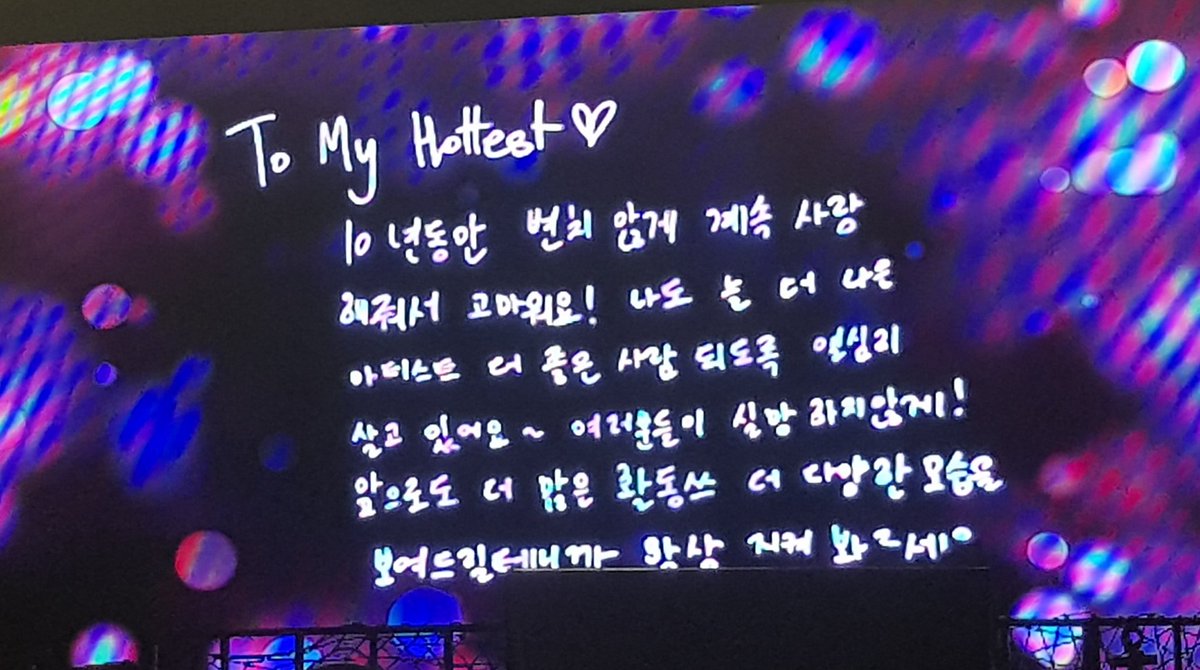 To My Hottest♡
10년동안 변치 않게 계속 사랑
해줘서 고마워요! 나도 늘 더 나은
아티스트 더 좋은 사람 되도록 열심히
살고 있어요~ 여러분들이 실망하지않게!
앞으로도 더 많은 활동쓰 더 다양한 모습을
보여드릴테니까 항상 지켜 봐